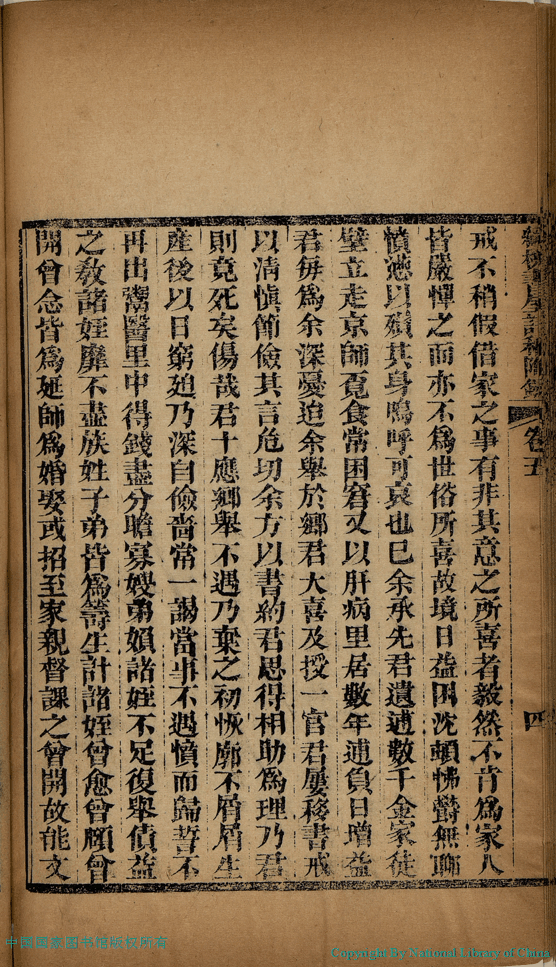 卷五
四
戒不稍假借家之事有非其意之所喜者毅然不肯為家人
皆嚴憚之而亦不為世俗所喜故境日益困沈頓怫鬱無聊
憤懣以殞其身嗚呼可哀也已余承先君遺逋數千金家徒
壁立走京師覓食常困窘又以肝病里居數年逋負日增益
君每為余深憂迨余舉於鄉君大喜及授一官君屢移書戒
以清愼節儉其言危切余方以書約君思得相助為理乃君
則竟死矣傷哉君十應鄉舉不遇乃棄之初恢廓不屑屑生
產後以日窮迫乃深自儉嗇常一謁當事不遇憤而歸誓不
再出鬻醫里中得錢盡分贍寡嫂弟媍諸姪不足復舉債益
之教諸姪靡不盡族姓子弟皆為籌生計諸姪曾愈曾頤曾
開曾念皆為延師為婚娶或招至家親督課之曾開故能文
中国国家图书馆版权所有
Copyright By National Library of China